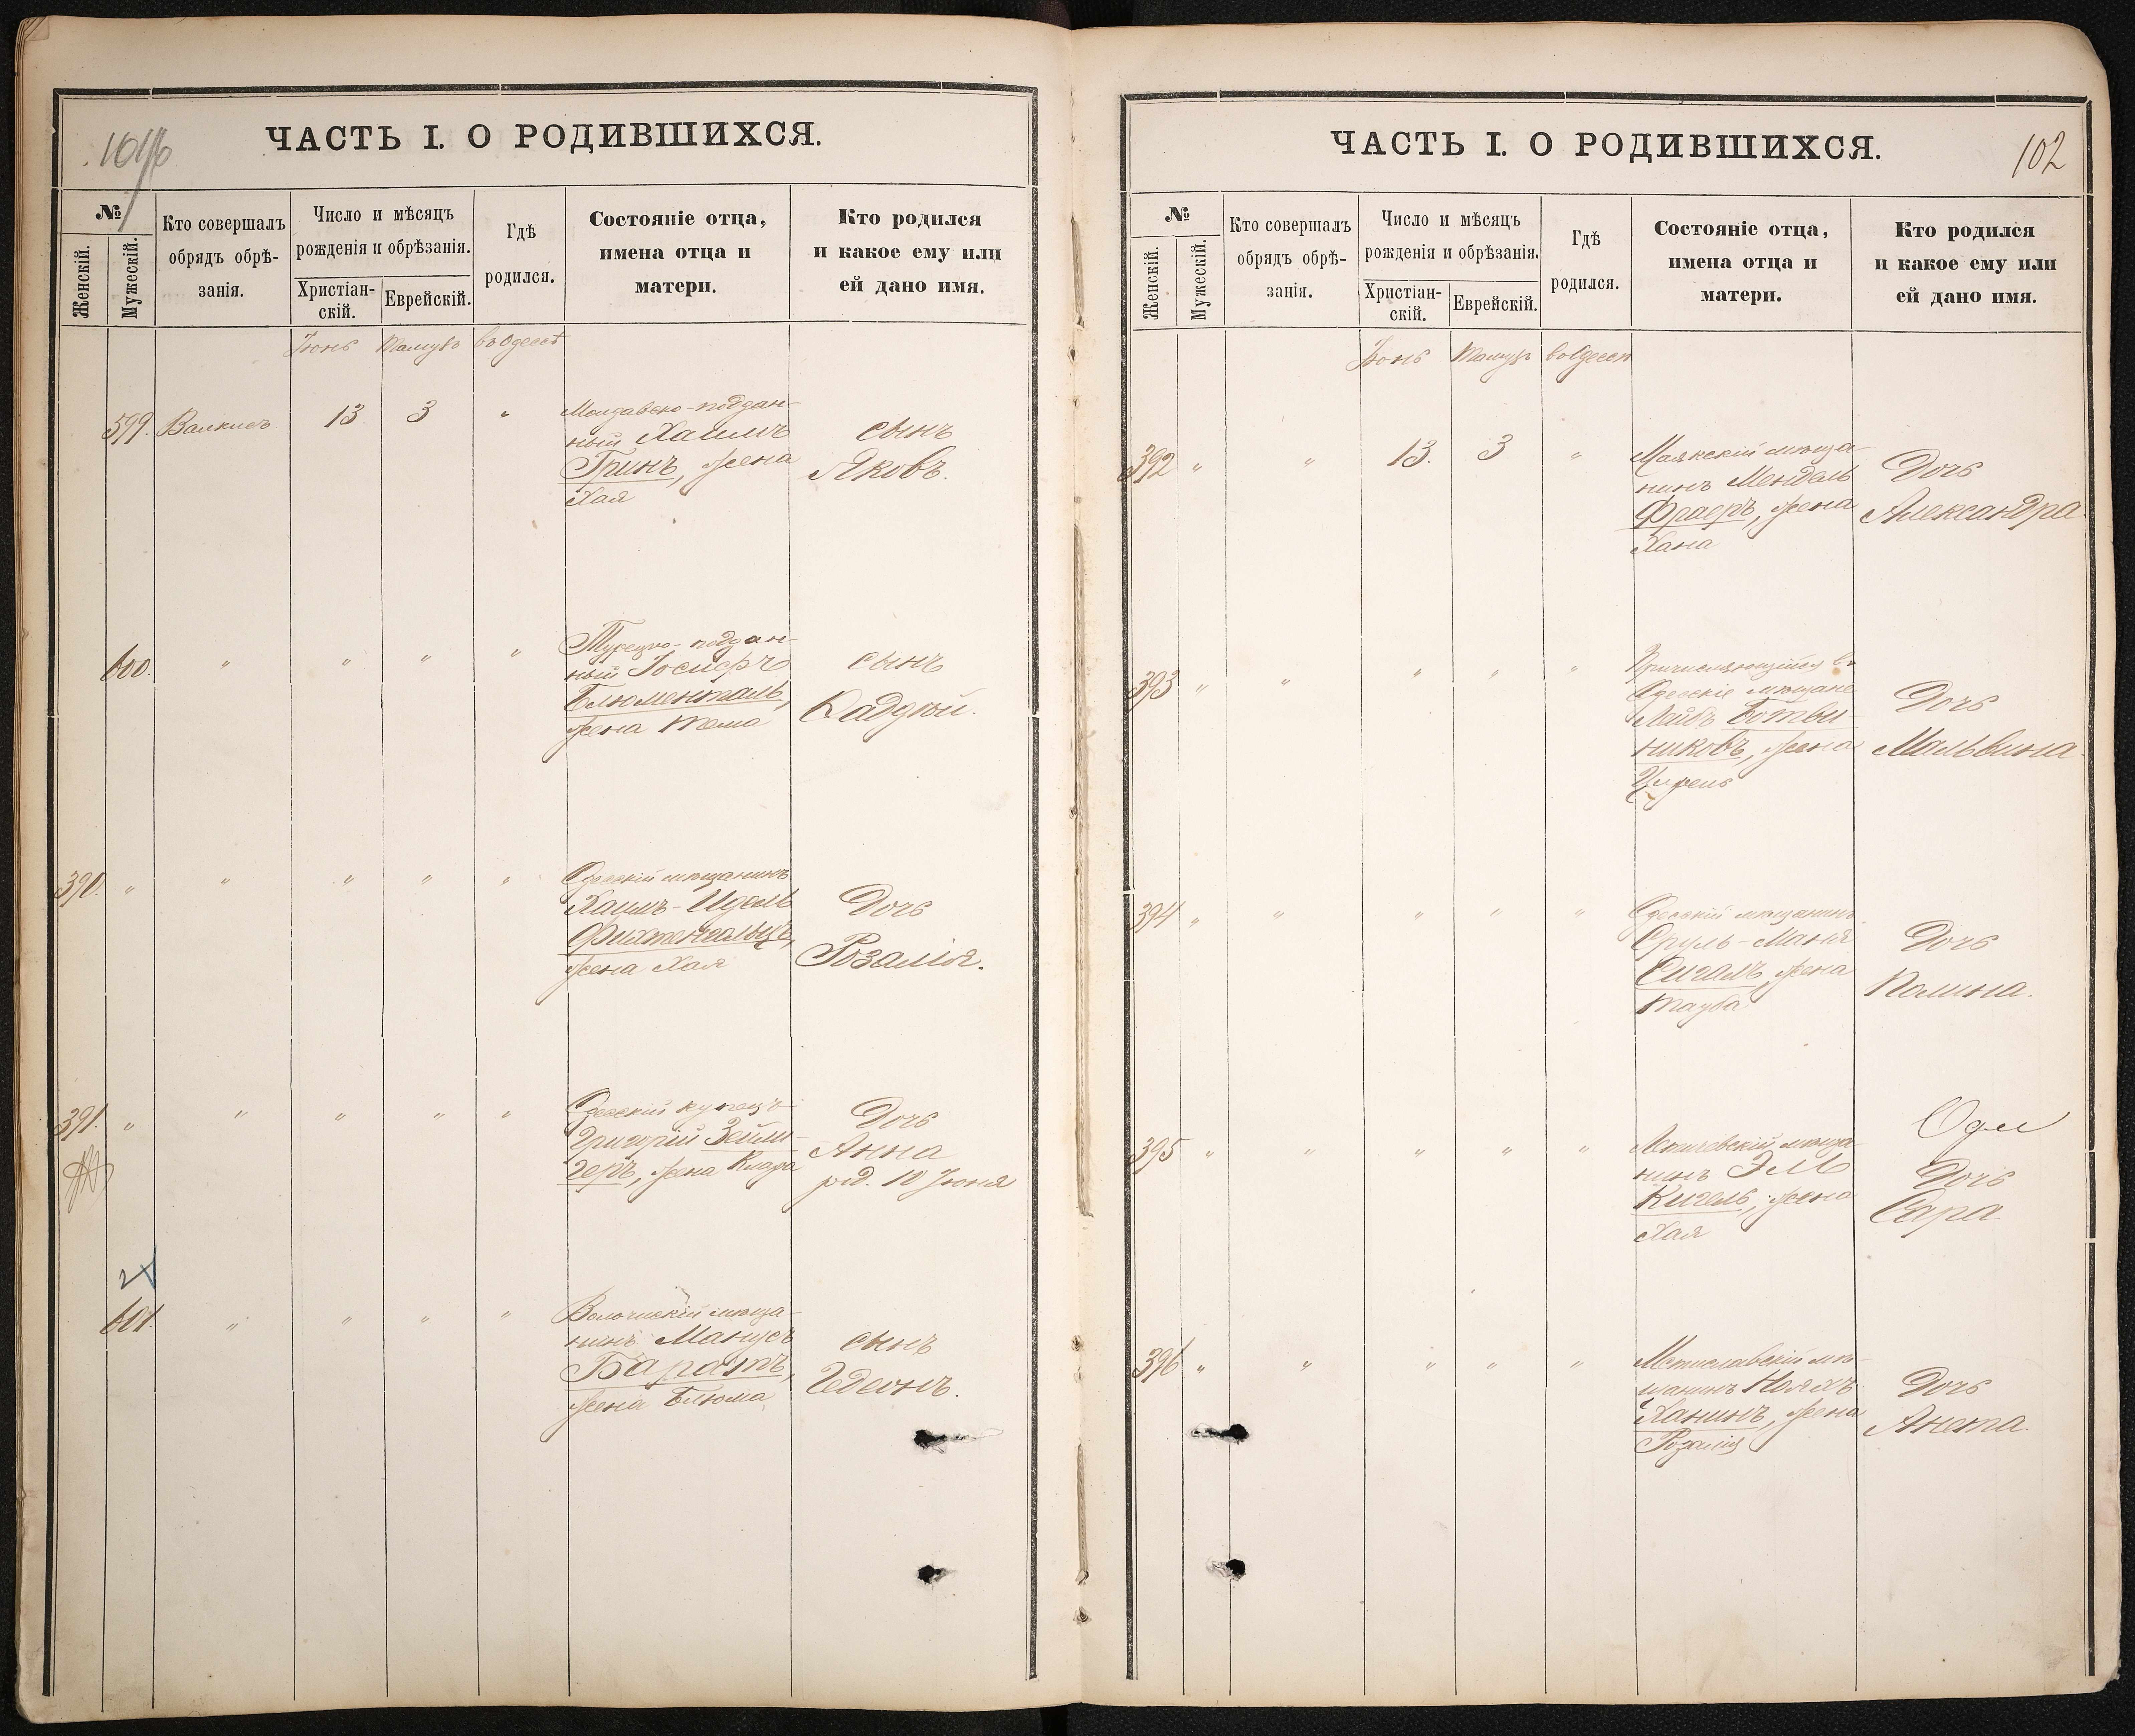 101 об
ЧАСТЬ I. О РОДИВШИХСЯ.
№
Женскій.
Мужескій.
Кто совершалъ
обрядъ обрѣ-
занія.
Число и мѣсяцъ
рожденія и обрѣзанія.
Христіан-
скій.
Еврейскій.
Гдѣ
родился.
Состояніе отца,
имена отца и
матери.
Кто родился
и какое ему или
ей дано имя.
Іюнь Тамузъ въ Одессѣ
599. Валкисъ 13. 3 "
Молдавско-поддан-
ный Хаимъ
Гринъ, жена
Хая
сынъ
Яковъ.
600. " " " "
Турецко-поддан-
ный Іосифъ
Блюменталь,
жена Тема
сынъ
390. " " " " "
Одесскій мѣщанинъ
Хаимъ-Идель
Фихтенгольцъ,
жена Хая
Дочь
Розалія.
391. " " " " "
Одесскій купецъ
Григорій Зейли-
геръ, жена Клара
Дочь
Анна
род. 10 Іюня
601. " " " "
Волочискій мѣща-
нинъ Манусъ
Баратъ,
жена Блюма
сынъ
Гедеонъ.
ЧАСТЬ I. О РОДИВШИХСЯ.
102
№
Женскій.
Мужескій.
Кто совершалъ
обрядъ обрѣ-
занія.
Число и мѣсяцъ
рожденія и обрѣзанія.
Христіан-
скій.
Еврейскій.
Гдѣ
родился.
Состояніе отца,
имена отца и
матери.
Кто родился
и какое ему или
ей дано имя.
Іюнь Тамузъ въ Одессѣ
392 " " 13. 3 "
Маякскій мѣща-
нинъ Мендель
Фраеръ, жена
Хана
Дочь
Александра.
393 " " " " "
Причисляющійся въ
Одесскіе мѣщане
Лейбъ Ботви-
никовъ, жена
Ципень
Дочь
Мальвина.
394 " " " " "
Одесскій мѣщанинъ
Сруль-Маня
Сигалъ, жена
Тауба
Дочь
Полина.
395 " " " " "
Летичевскій мѣща-
нинъ
Кигель, жена
Хая
Дочь
Сара.
396 " " " " "
Мстиславскій мѣ-
щанинъ Нояхъ
Ханинъ, жена
Розалія
Дочь
Анета.